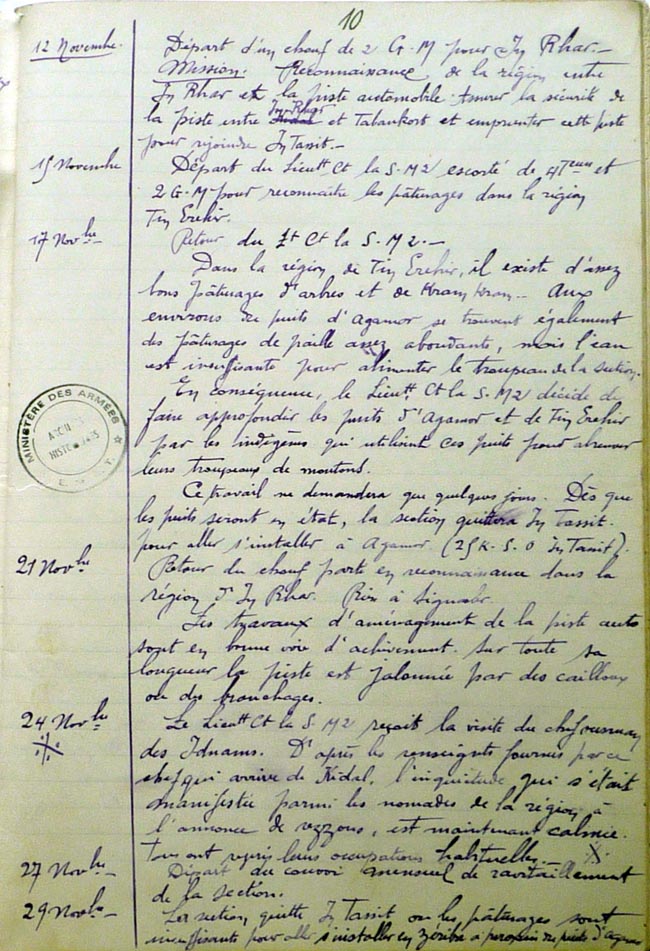 10
12 Novembre. Départ d'un chouf de 2 G-M pour In Rhar.-
Mission. Reconnaissance de la région entre
In Rhar et la piste automobile. Assurer la sécurité de
In Rhar
la piste entre Kidal et Tabankort et emprunter cette piste
pour rejoindre In Tassit.-
15 Novembre Départ du Lieutt Ct la S.M2 escorté de et
2 G-M pour reconnaître les pâturages dans la région
Tin Erehir.
17 Novbre Retour du Lt Ct la S.M2.-
Dans la région de Tin Erehir, il existe d'assez
bons pâturages d'arbres et de Kram Kram.- Aux
environs du puits d'Agamor se trouvent également
des pâturages de paille assez abondants, mais l'eau
est insuffisante pour alimenter le troupeau de la section.
En conséquence, le Lieutt Ct la S.M2 décide de
faire approfondir les puits d'Agamor et de Tin Erehir
par les indigènes qui utilisent ces puits pour abreuver
leurs troupeaux de moutons.
Ce travail ne demandera que quelques jours. Dès que
les puits seront en état, la section quittera In Tassit
pour aller s'installer à Agamor (25K. S.O In Tassit).
21 Novbre Retour du chouf parti en reconnaissance dans la
région d'In Rhar. Rien à signaler.
Les travaux d'aménagement de la piste auto
sont en bonne voie d'achèvement. Sur toute sa
longueur la piste est jalonnée par des cailloux
ou des branchages.
24 Novbre Le Lieutt Ct la S M2 reçoit la visite du chef
des Idnams. D'après les renseignts fournis par ce
chef qui arrive de Kidal, l'inquiétude qui s'était
manifestée parmi les nomades de la région à
l'annonce de rezzous, est maintenant calmée.
Tous ont repris leurs occupations habituelles.-
27 Novbre- Départ du convoi mensuel de ravitaillement
de la section.
29 Novbre- La section quitte In Tassit où les pâturages sont
insuffisants pour aller s'installer en zériba à proximité du puits d'Agamor
MINISTÈRE DES ARMÉES